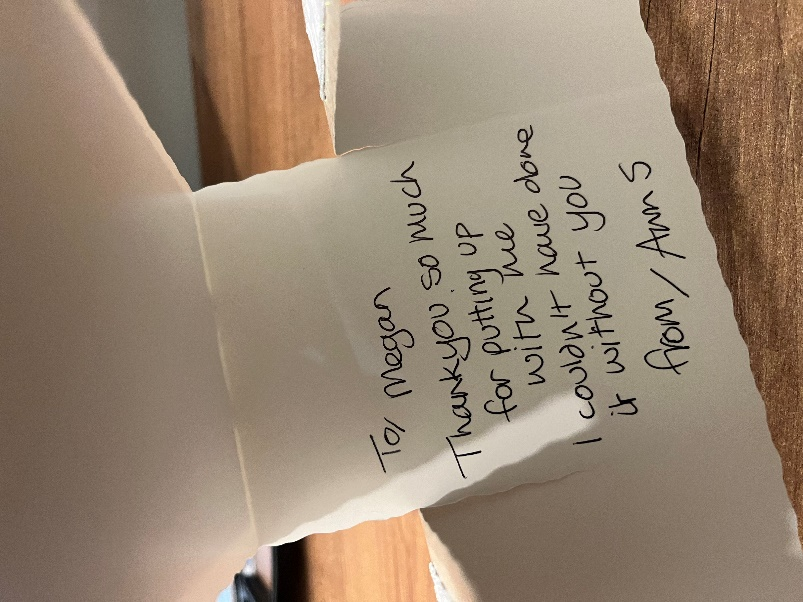 To/ Megan
Thankyou so much
for putting up
with me
I couldn't have done
it without you
from/ Ann S